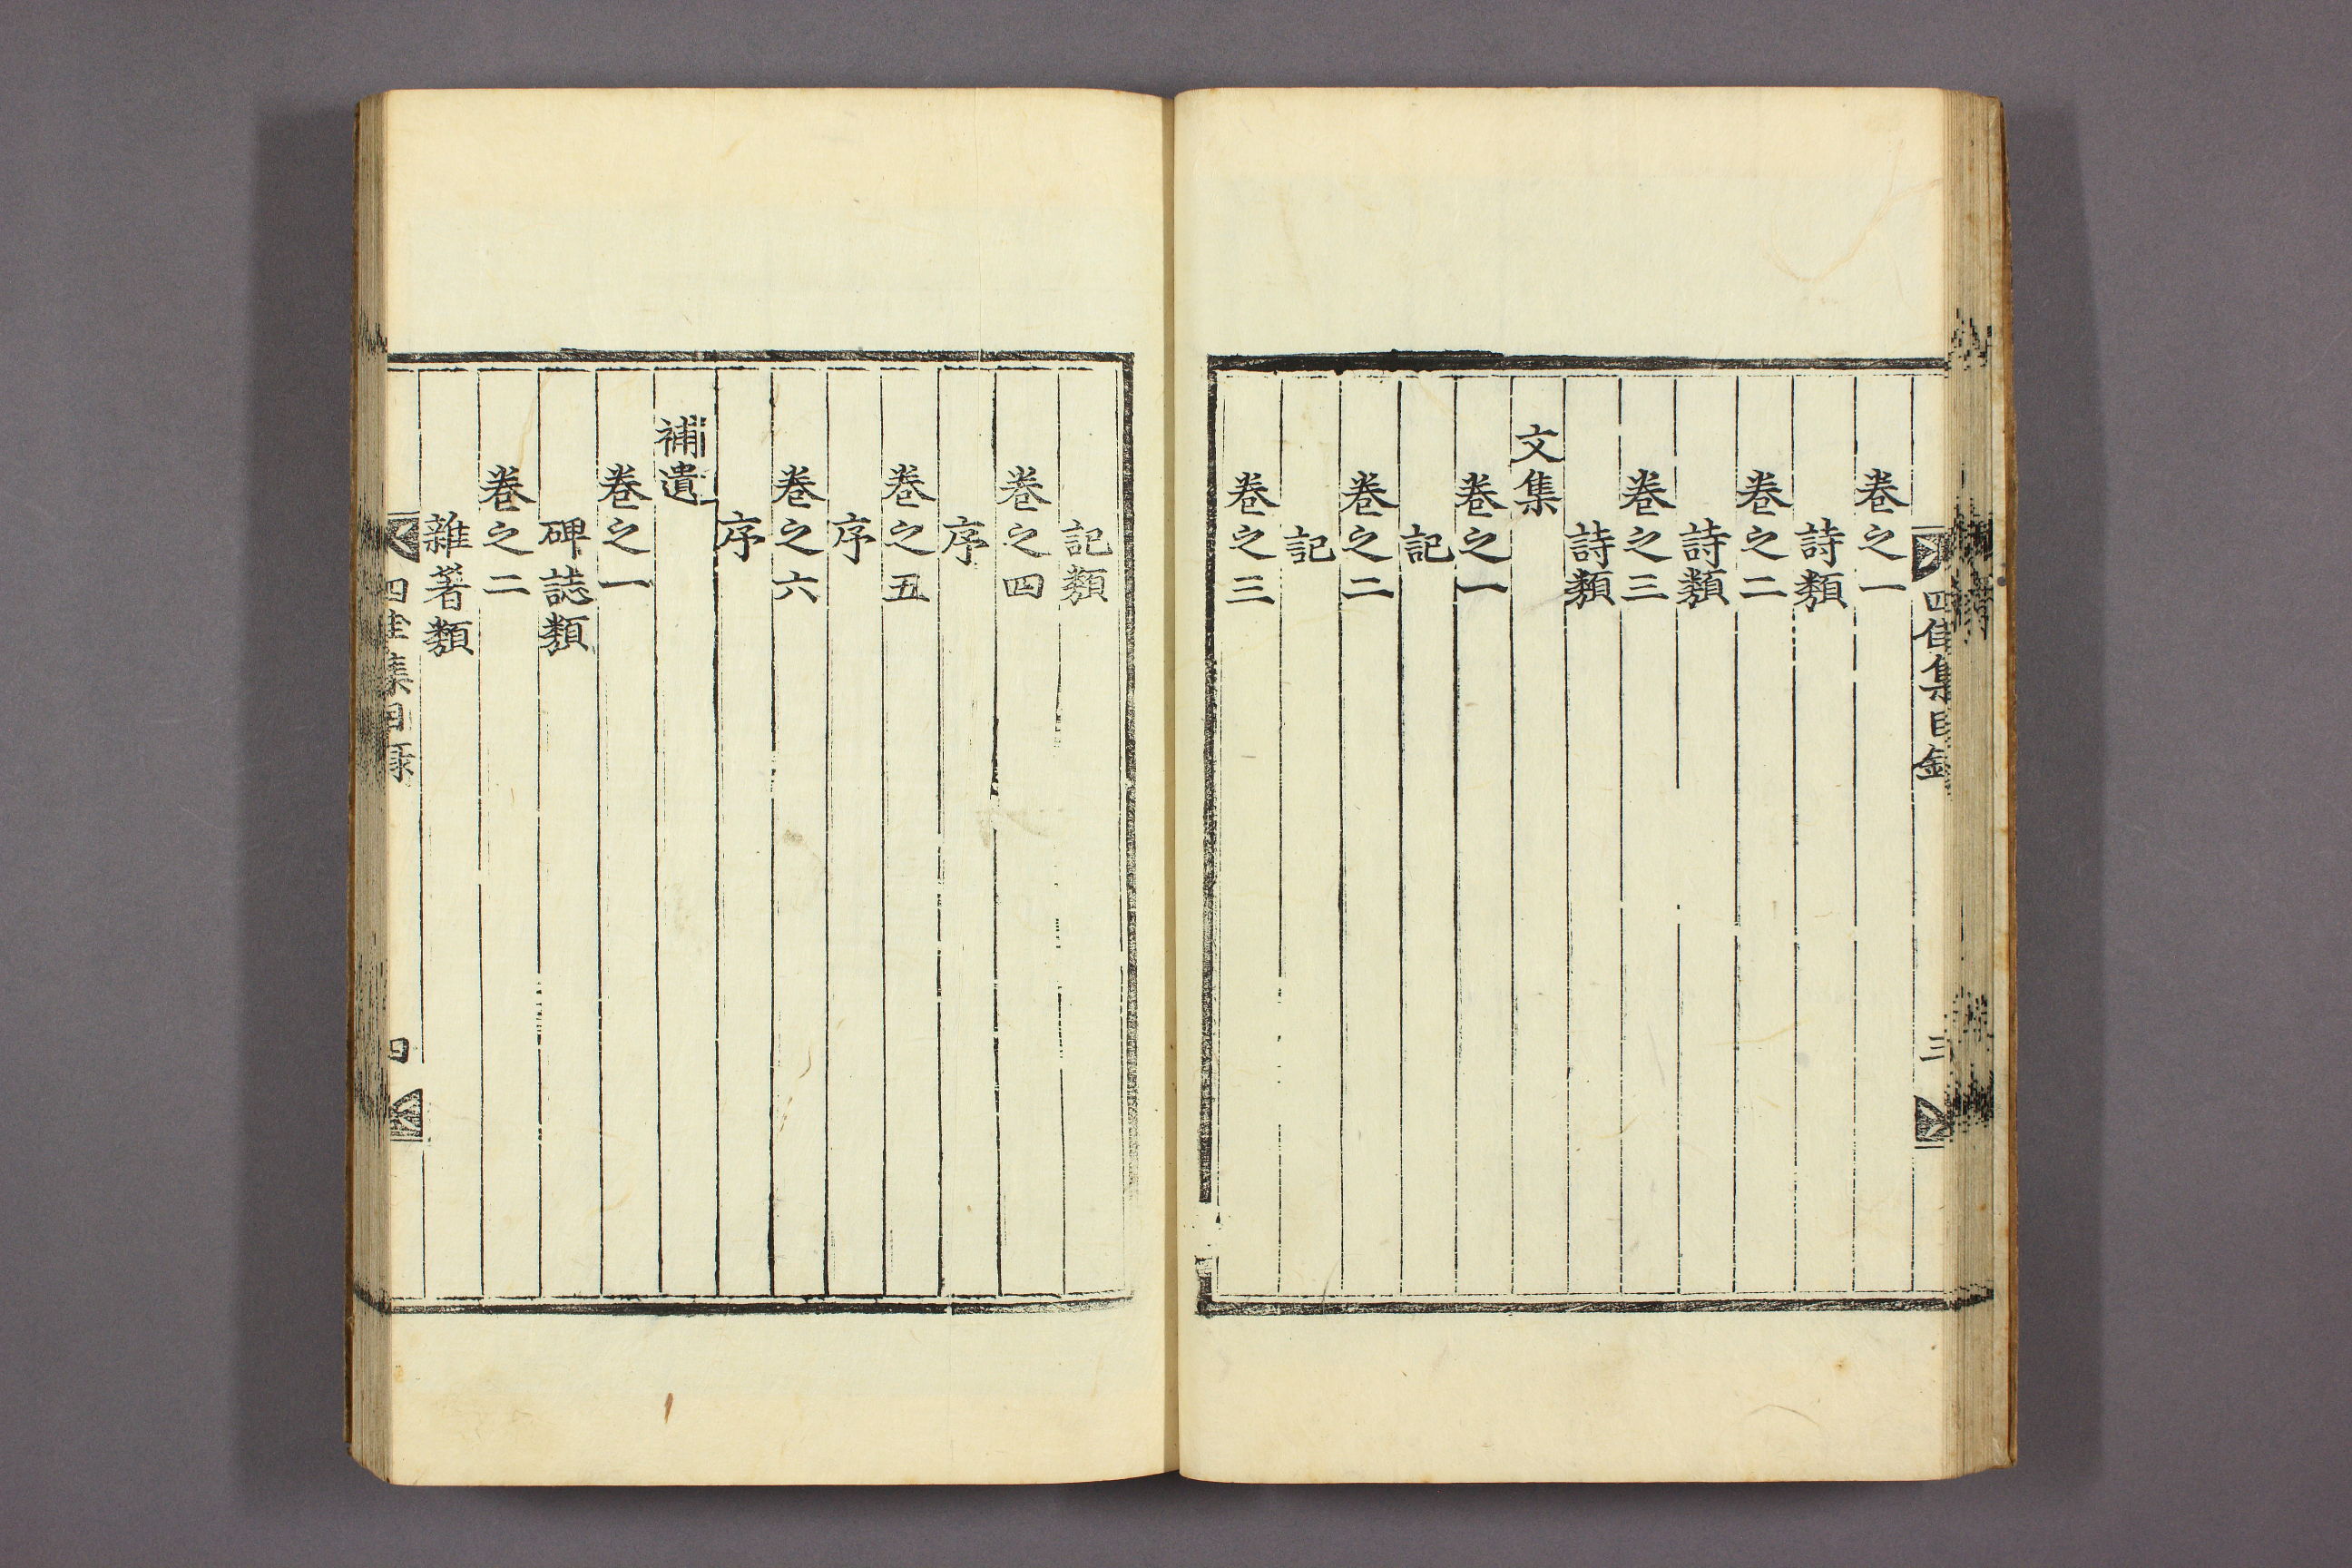 四佳集目錄
三
卷之一
詩類
卷之二
詩類
卷之三
詩類
文集
卷之一
記
卷之二
記
卷之三
記類
卷之四
序
卷之五
序
卷之六
序
補遺
卷之一
碑誌類
卷之二
雜著類
四佳集目錄
四